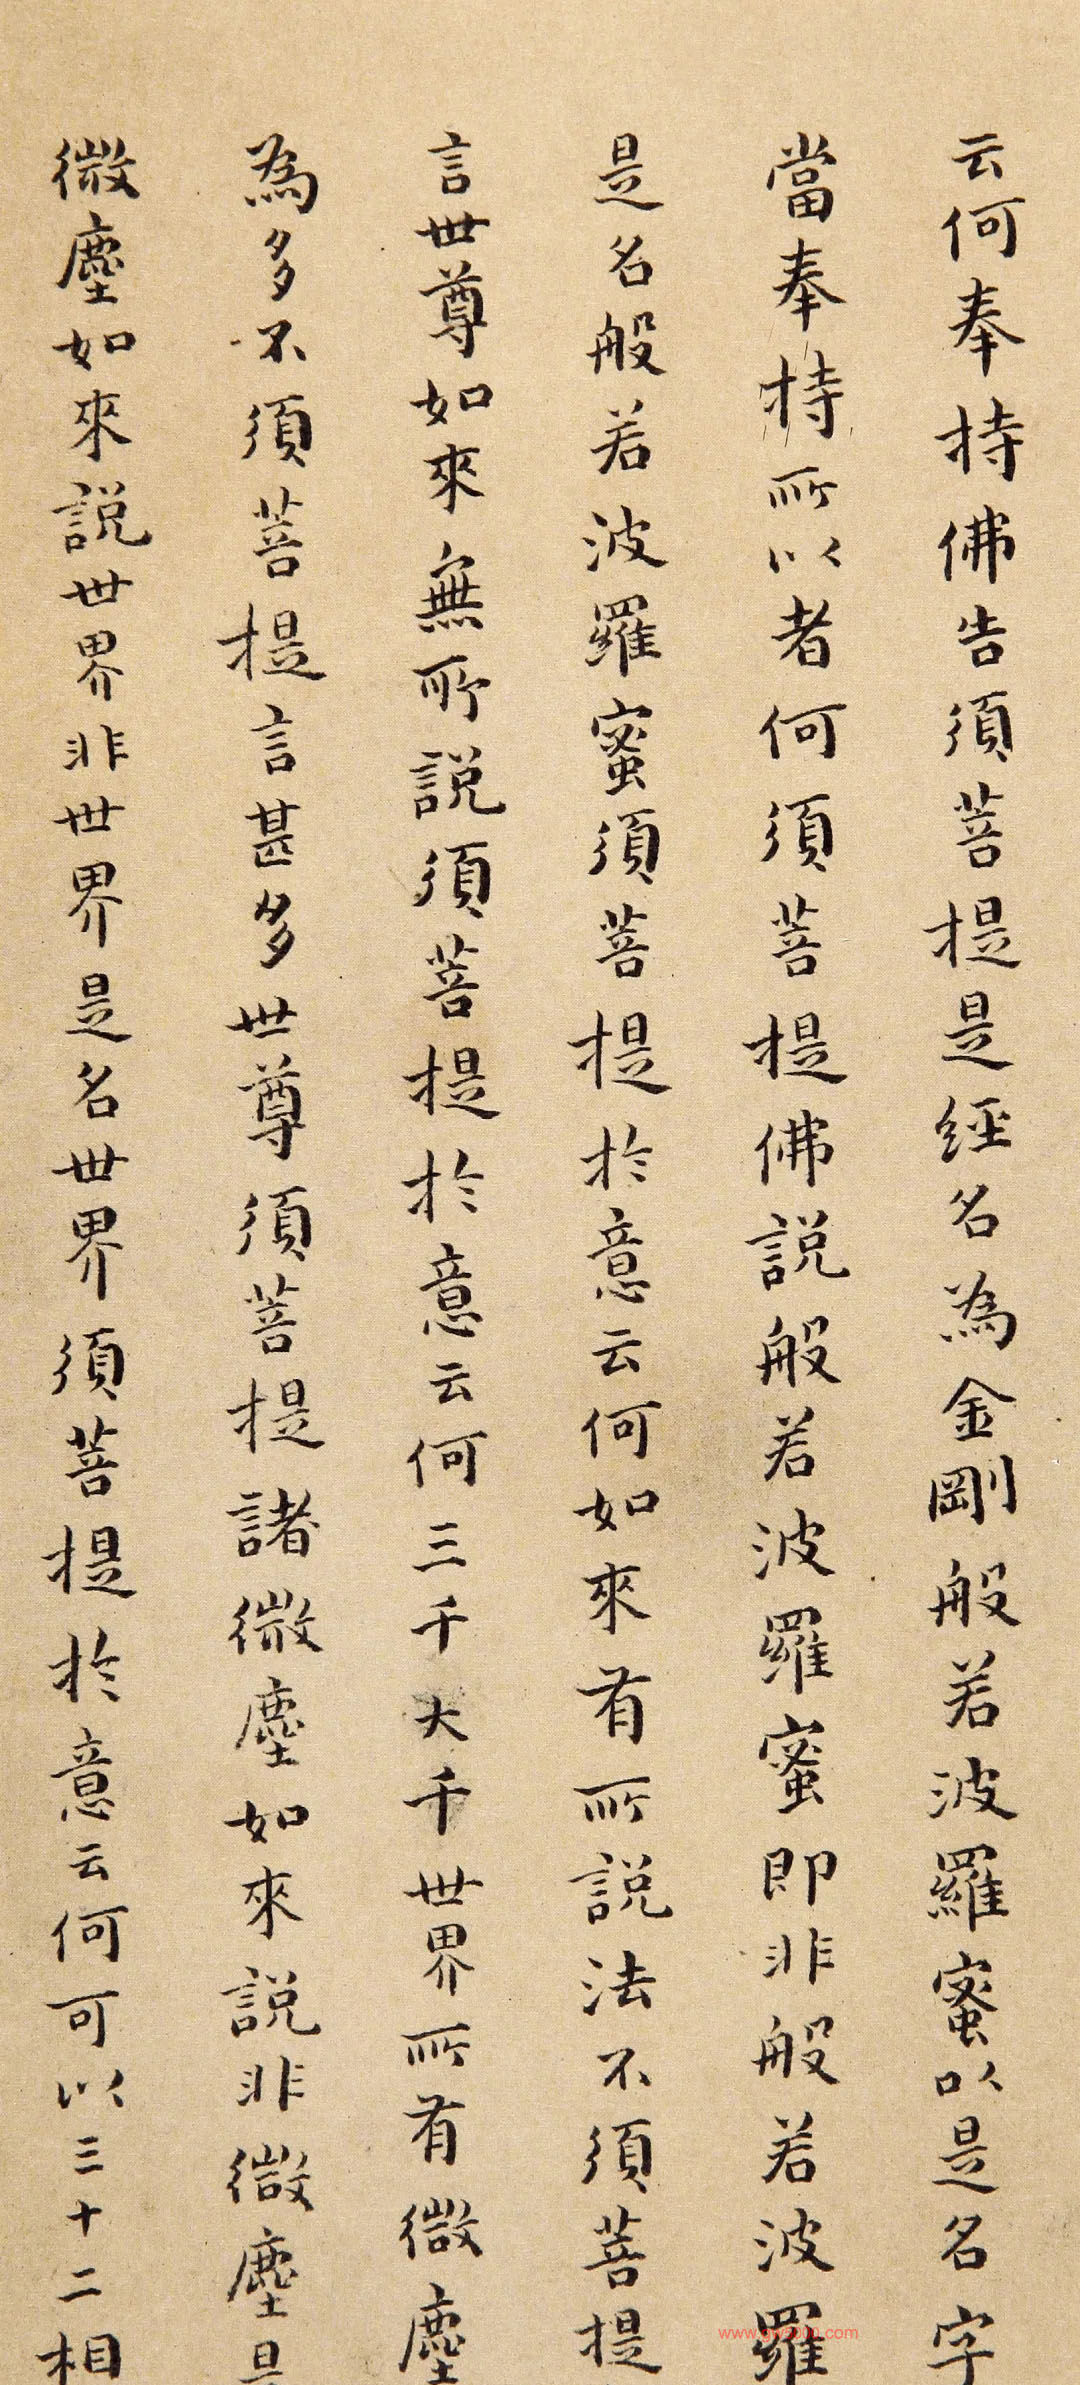 云何奉持佛告須菩提是經名為金剛般若波羅蜜以是名字
當奉持所以者何須菩提佛說般若波羅蜜即非般若波羅
是名般若波羅蜜須菩提於意云何如來有所說法不須菩提
言世尊如來無所說須菩提於意云何三千大千世界所有微塵
為多不須菩提言甚多世尊須菩提諸微塵如來說非微塵是
微塵如來說世界非世界是名世界須菩提於意云何可以三十二相
www.gw5000.com